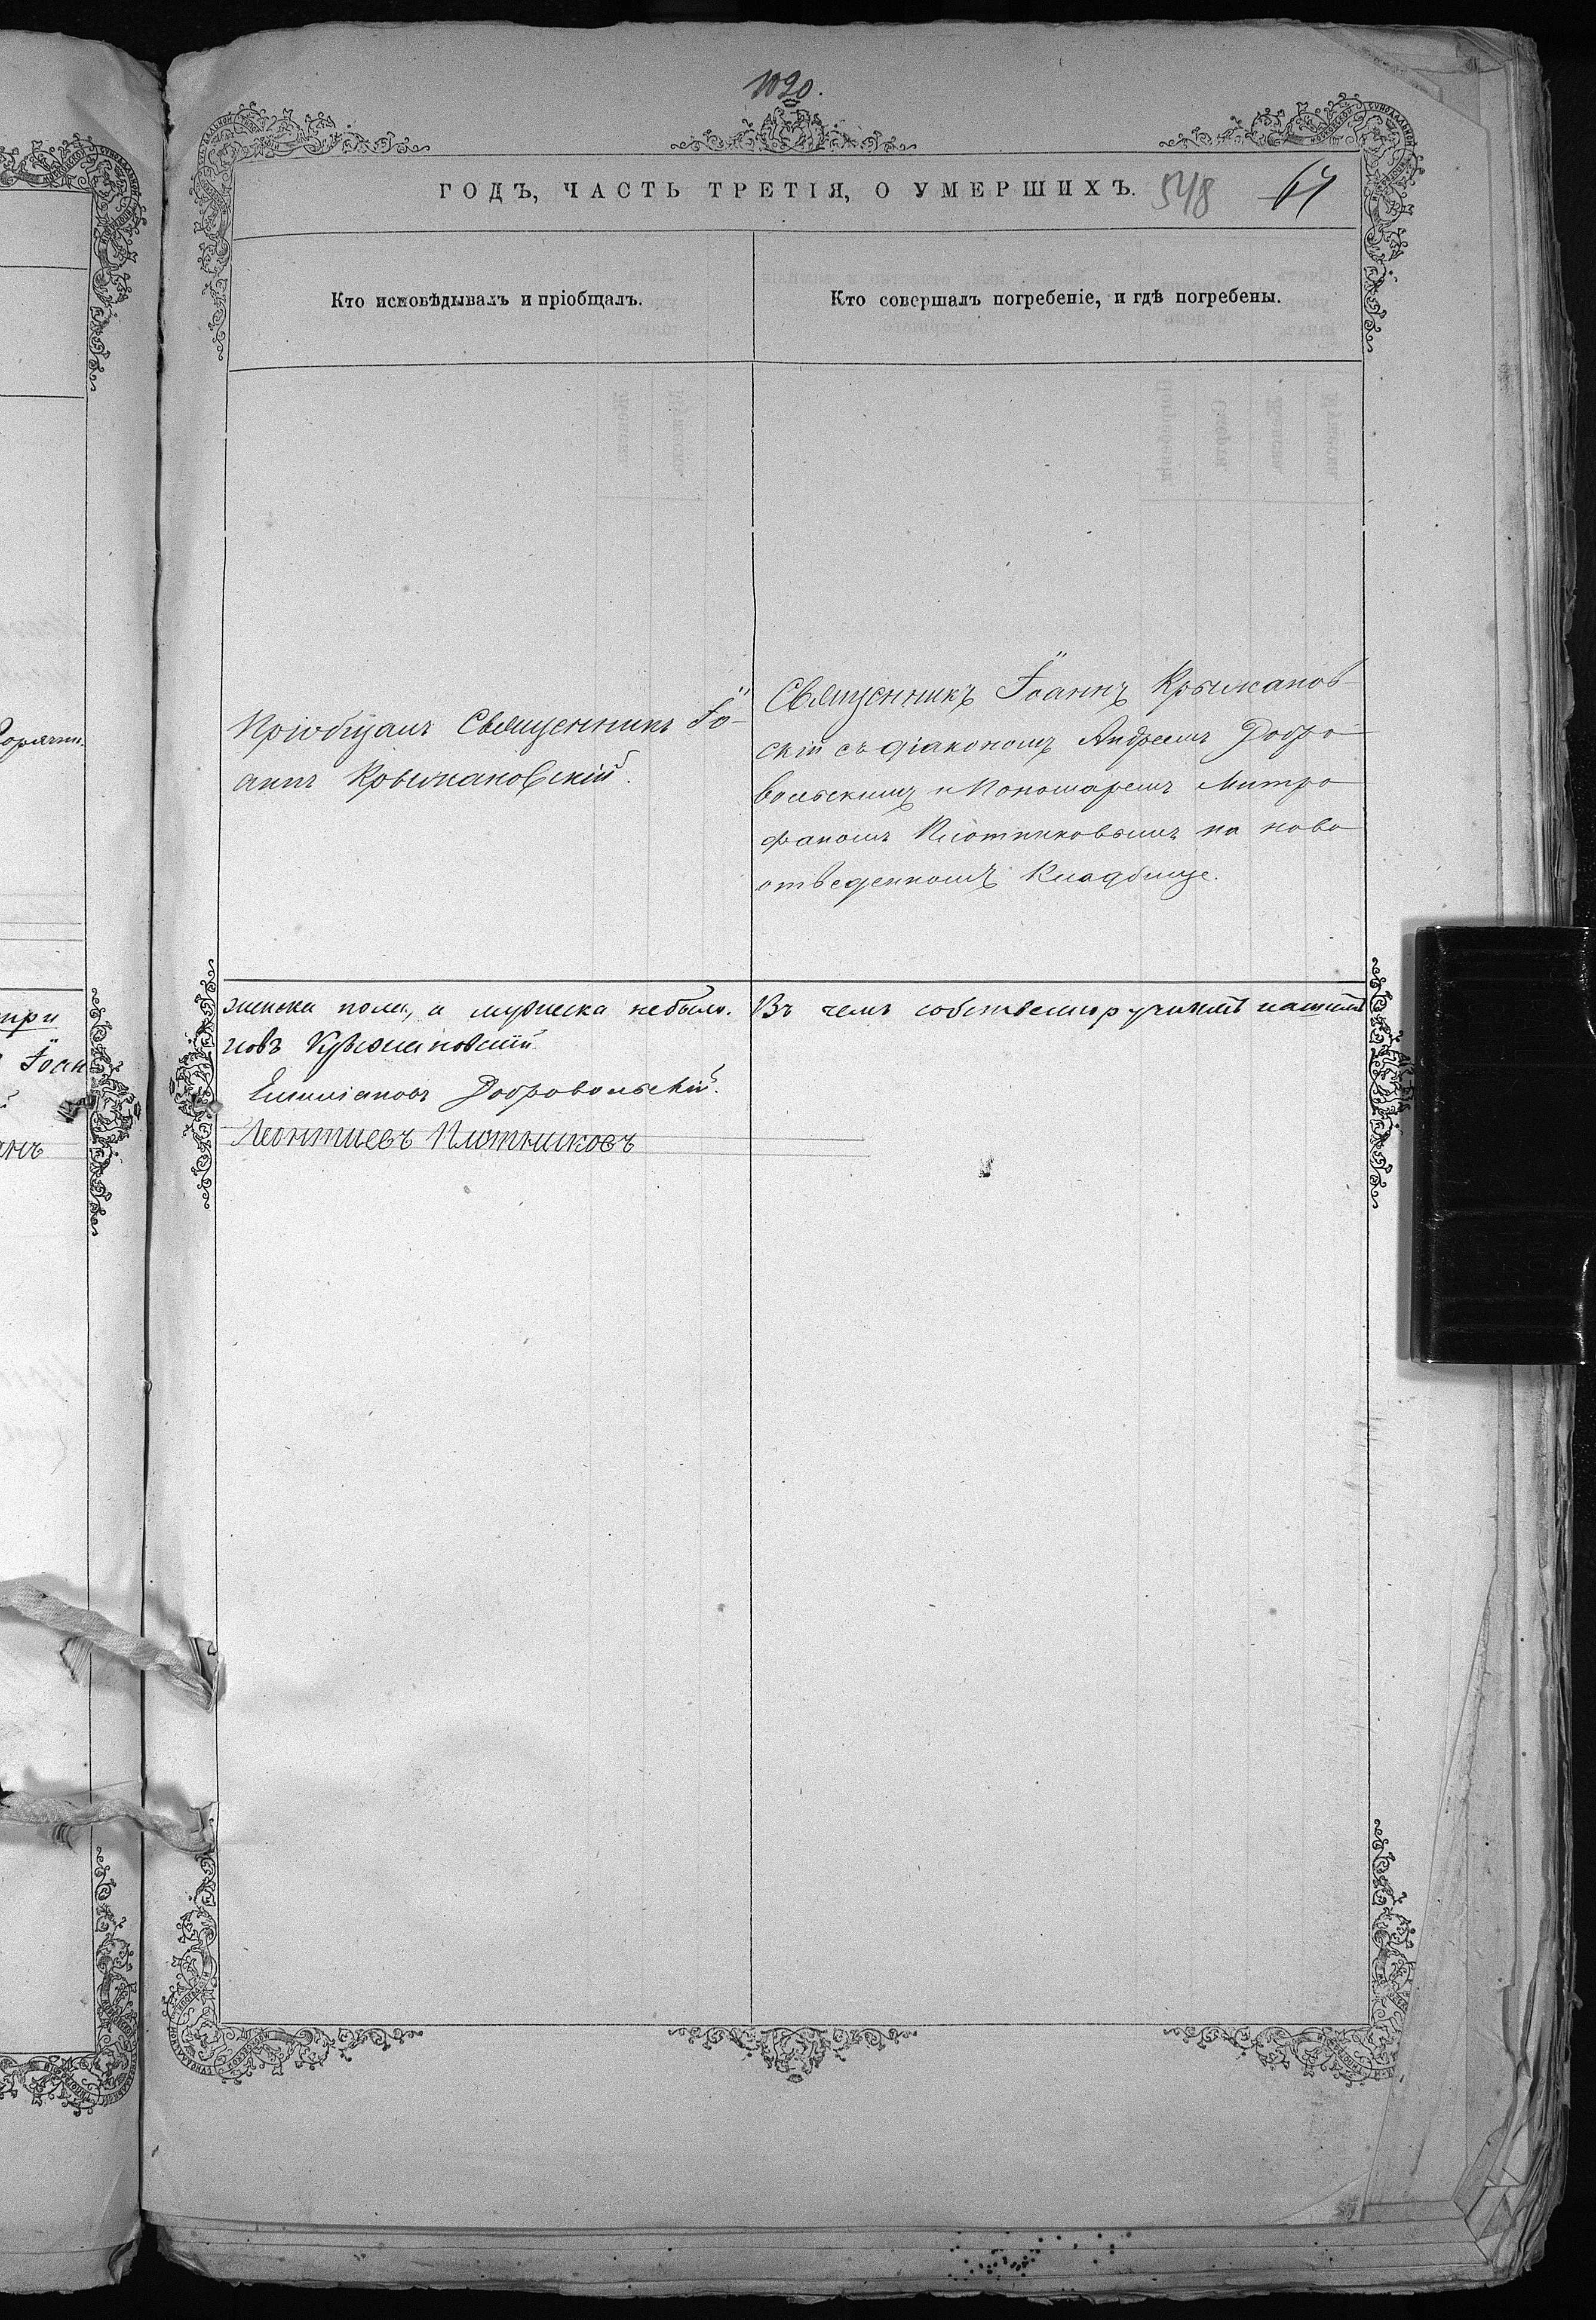 1020.
ГОДЪ, ЧАСТЬ ТРЕТІЯ, О УМЕРШИХЪ. 548 64
Кто исповѣдывалъ и пріобщалъ.
Кто совершалъ погребеніе, и гдѣ погребены.
Пріобщалъ Священникъ Іо-
аннъ Крыжановскій.
Священникъ Іоаннъ Крыжанов-
скій съ діакономъ Андреемъ Добро-
вольскимъ и Пономаремъ Митро-
фаномъ Плотниковымъ на ново-
отведенномъ Кладбище.
женска пола, а мужеска небыло. Въ чемъ собственноручнымъ нашимъ
новъ Крыжановскій
Емиліановъ Добровольскій.
Леонтиевъ Плотниковъ
три
Іоан